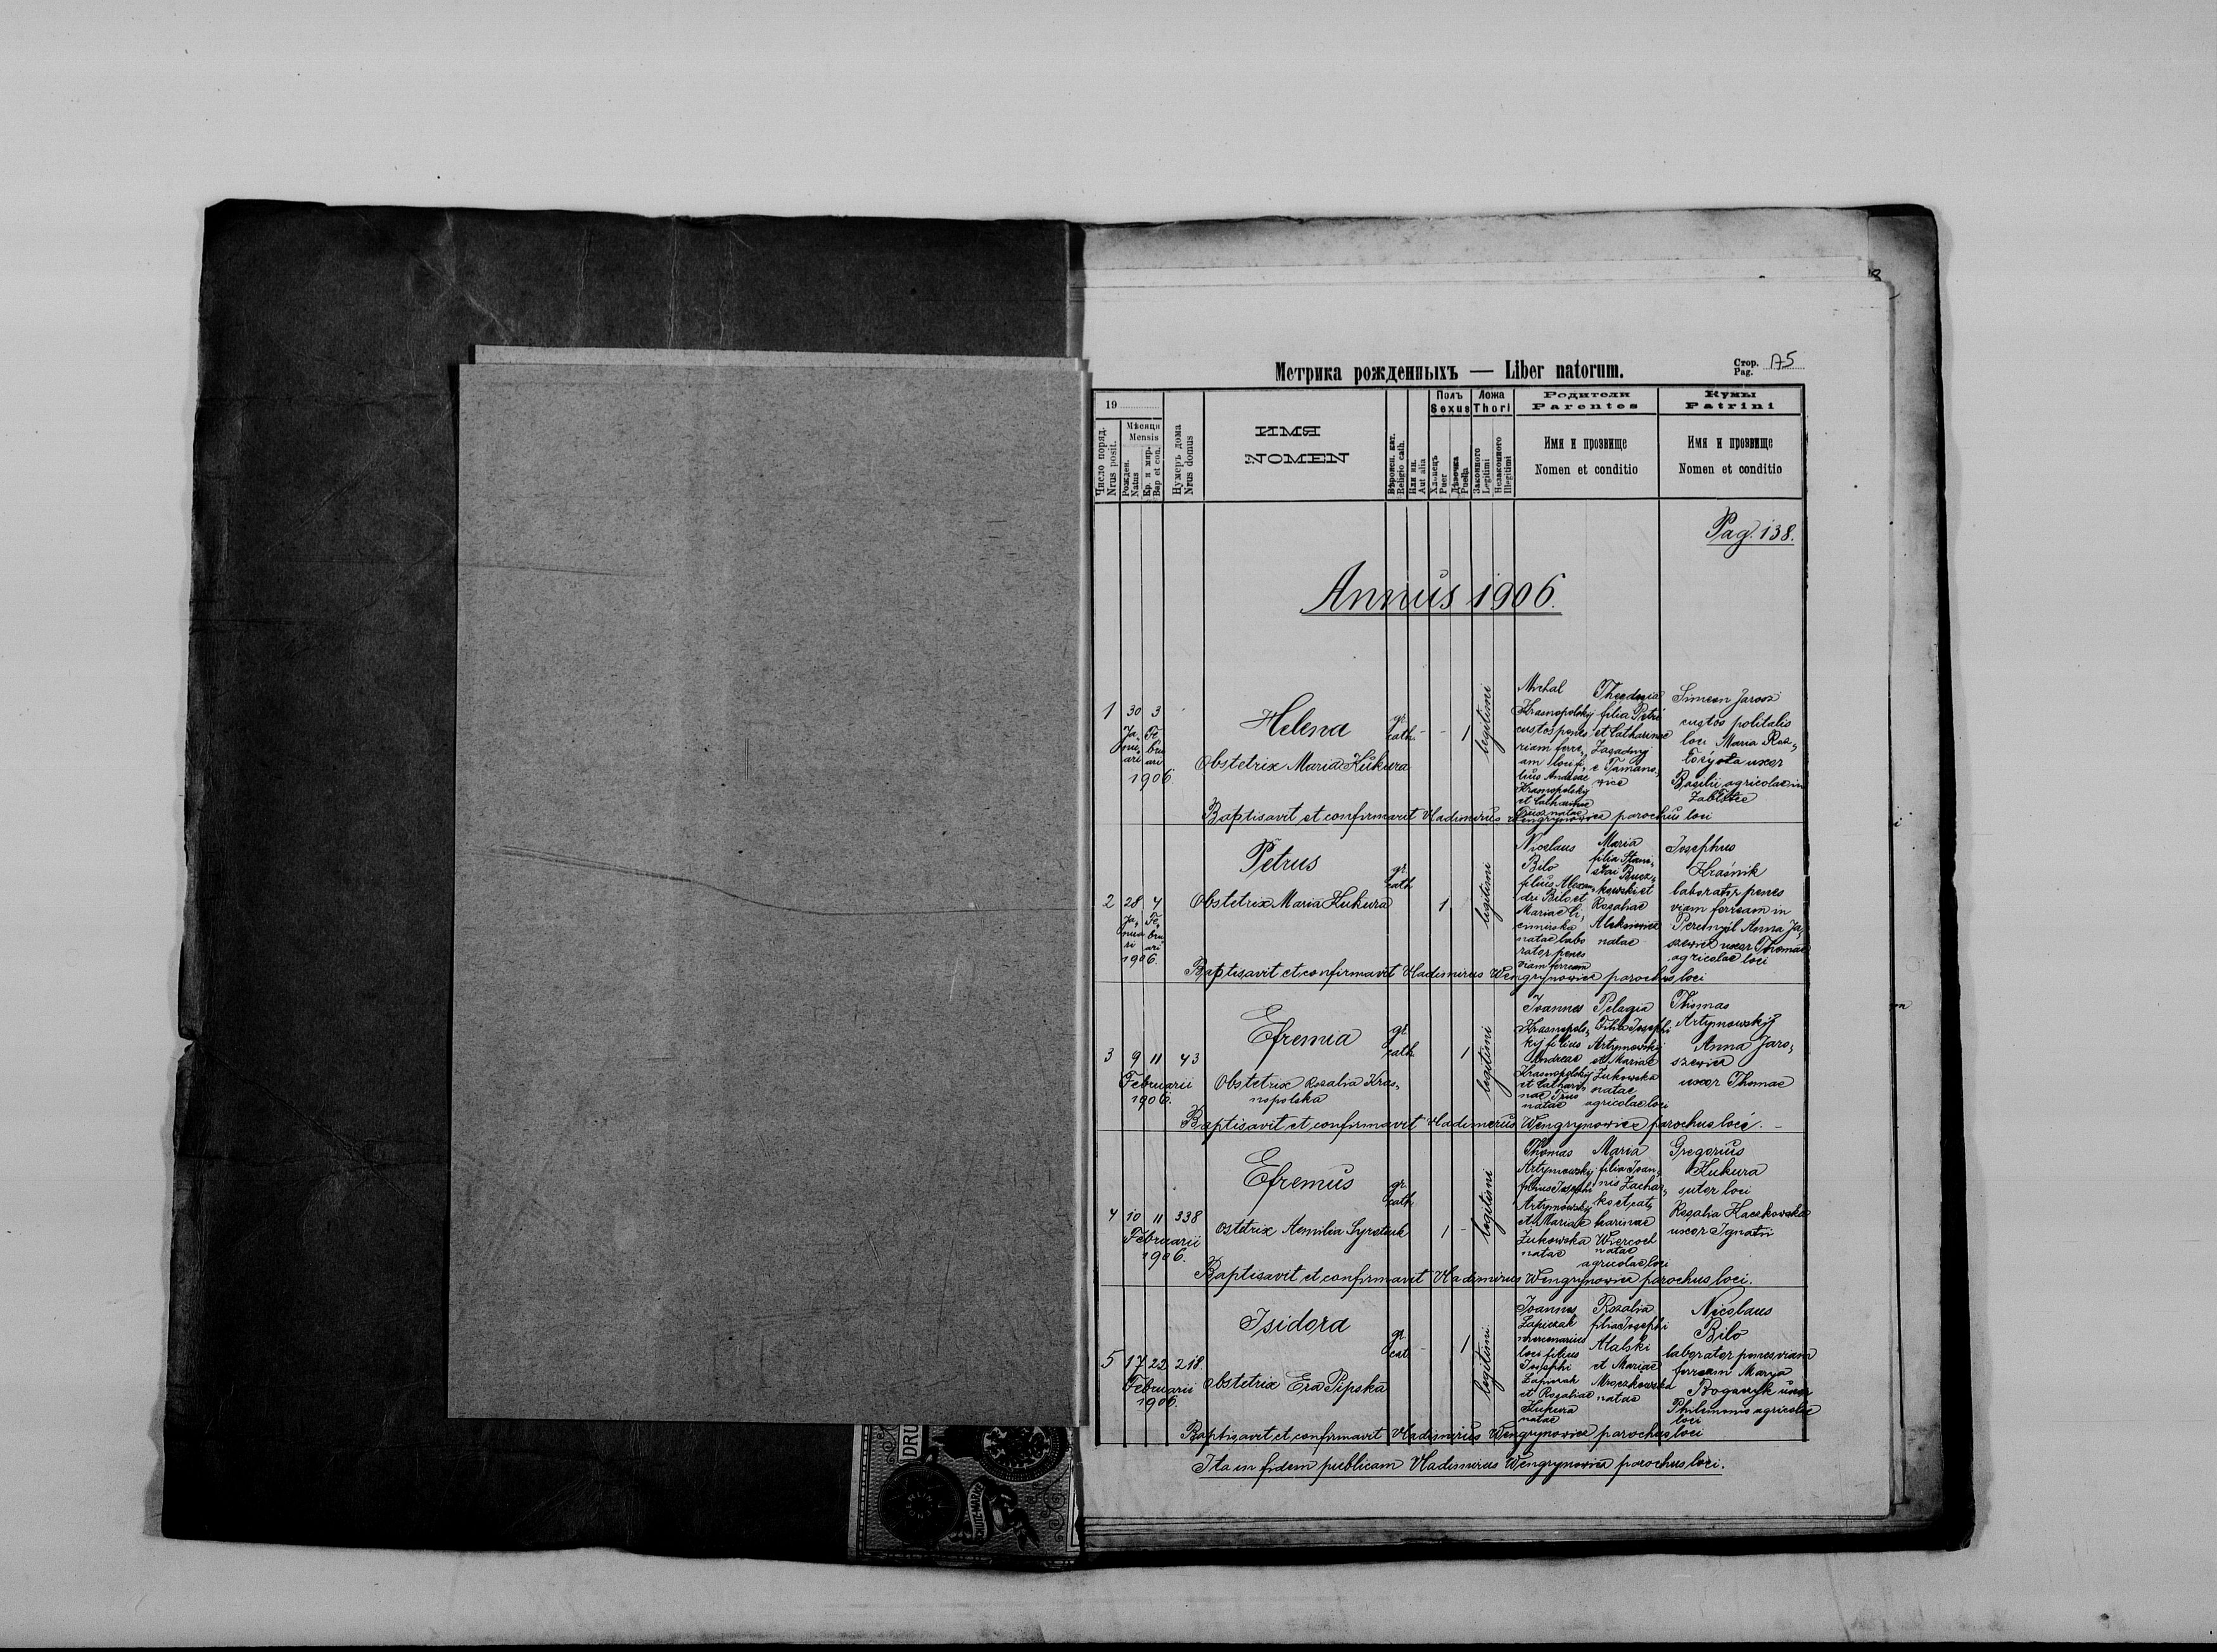 Метрика рожденныхъ — Liber natorum.
Стор.
Pag. 75
19
Число поряд.
Nrus posit.
Мѣсяця
Mensis
Рожден.
Natus
Кр. и мир.
Bap et con.
Нумеръ дома
Nrus domus
ИМЯ
NOMEN
Вѣроисп. кат.
Religio cath.
Или ин.
Aut alia
Полъ
Sexus
Хлопецъ
Puer
Дѣвочка
Puella
Ложа
Thori
Законного
Legitimi
Незаконного
Illegitimi
Родители
Parentes
Имя и прозвище
Nomen et conditio
Кумы
Patrini
Имя и прозвище
Nomen et conditio
Pag. 138.
Annus 1906.
1 30 3
Ja, Fe
nu, bru
ari ari
1906
Helena
gr.
cath
- - 1
legitimi
Obstetrix Maria Kukura
Michal
Krasnopolsky
custos penes
viam ferre,
am loci fi,
lius Andreae
Krasnopolsky
et Catharinae
natae
filia Petri
et Catharinae
Zagadnyj
Simeon Jarosz
custos politalis
loci Maria
uxor
Basilii agricolae in
Baptisavit et confirmavit Vladimirus Wengrynowicz parochus loci
2 28 4
Ja, Fe,
nua bru
ri ari
1906.
Petrus
gr.
cath
1
legitimi
Obstetrix Maria Kukura
Nicolaus
Bilo
filius Alexan,
dri Bilo et
Mariae
natae labo
rator penes
viam ferream
Maria
filia Stani,
slai Bucz,
kowski et
Rozaliae
natae
Josephus
Kraśnik
laborator penes
viam ferream in
Peremyśl Anna Ja,
szewicz uxor Thomae
agricolae loci
Baptisavit et confirmavit Vladimirus Wengrynowicz parochus loci
3 9 11 43
Februarii
1906.
Efremia
gr.
cath
1
legitimi
Obstetrix Rozalia Kras,
nopolska
Joannes
Krasnopols,
kyj filius
Andreae
Krasnopolskyj
et Cathari,
nae Trus
natae
Pelagia
filia Josephi
Artymowskyj
et Mariae
Żukowska
natae
agricolae loci
Thomas
Artymowskyj
Anna Jaro,
szewicz
uxor Thomae
Baptisavit et confirmavit Vladimirus Wengrynowicz parochus loci. -
4 10 11 338
Februarii
1906.
Efremus
gr.
cath
1 -
legitimi
Ostetrix Aemilia Syrotiuk
Thomas
Artymowskyj
filius Josephi
Artymowskyj
et Mariae
Żukowska
natae
Maria
filia Joan,
nis Zachar,
ko et cat,
harinae
Wiercoch
natae
agricolae loci
Gregorius
Kukura
suter loci
Rozalia Kaczkowska
uxor Ignatii
Baptisavit et confirmavit Vladimirus Wengrynowicz parochus loci.
5 17 22 218.
Februarii
1906.
Isidora
gr.
cat
- 1
legitimi.
Obstetrix Eva Pipska
Joannes
Łapiczak
mercenarius
loci filius
Josephi
et Rozaliae
Kukura
natae
Rozalia
filia Josephi
Atalski
et Mariae
Mroczkowska
natae
Nicolaus
Bilo
laborator penes viam
ferream Marya
uxor
Philimonis agricolae
loci
Baptisavit et confirmavit Vladimirus Wengrynowicz parochus loci
Ita in fidem publicam Vladimirus Wengrynowicz parochus loci.